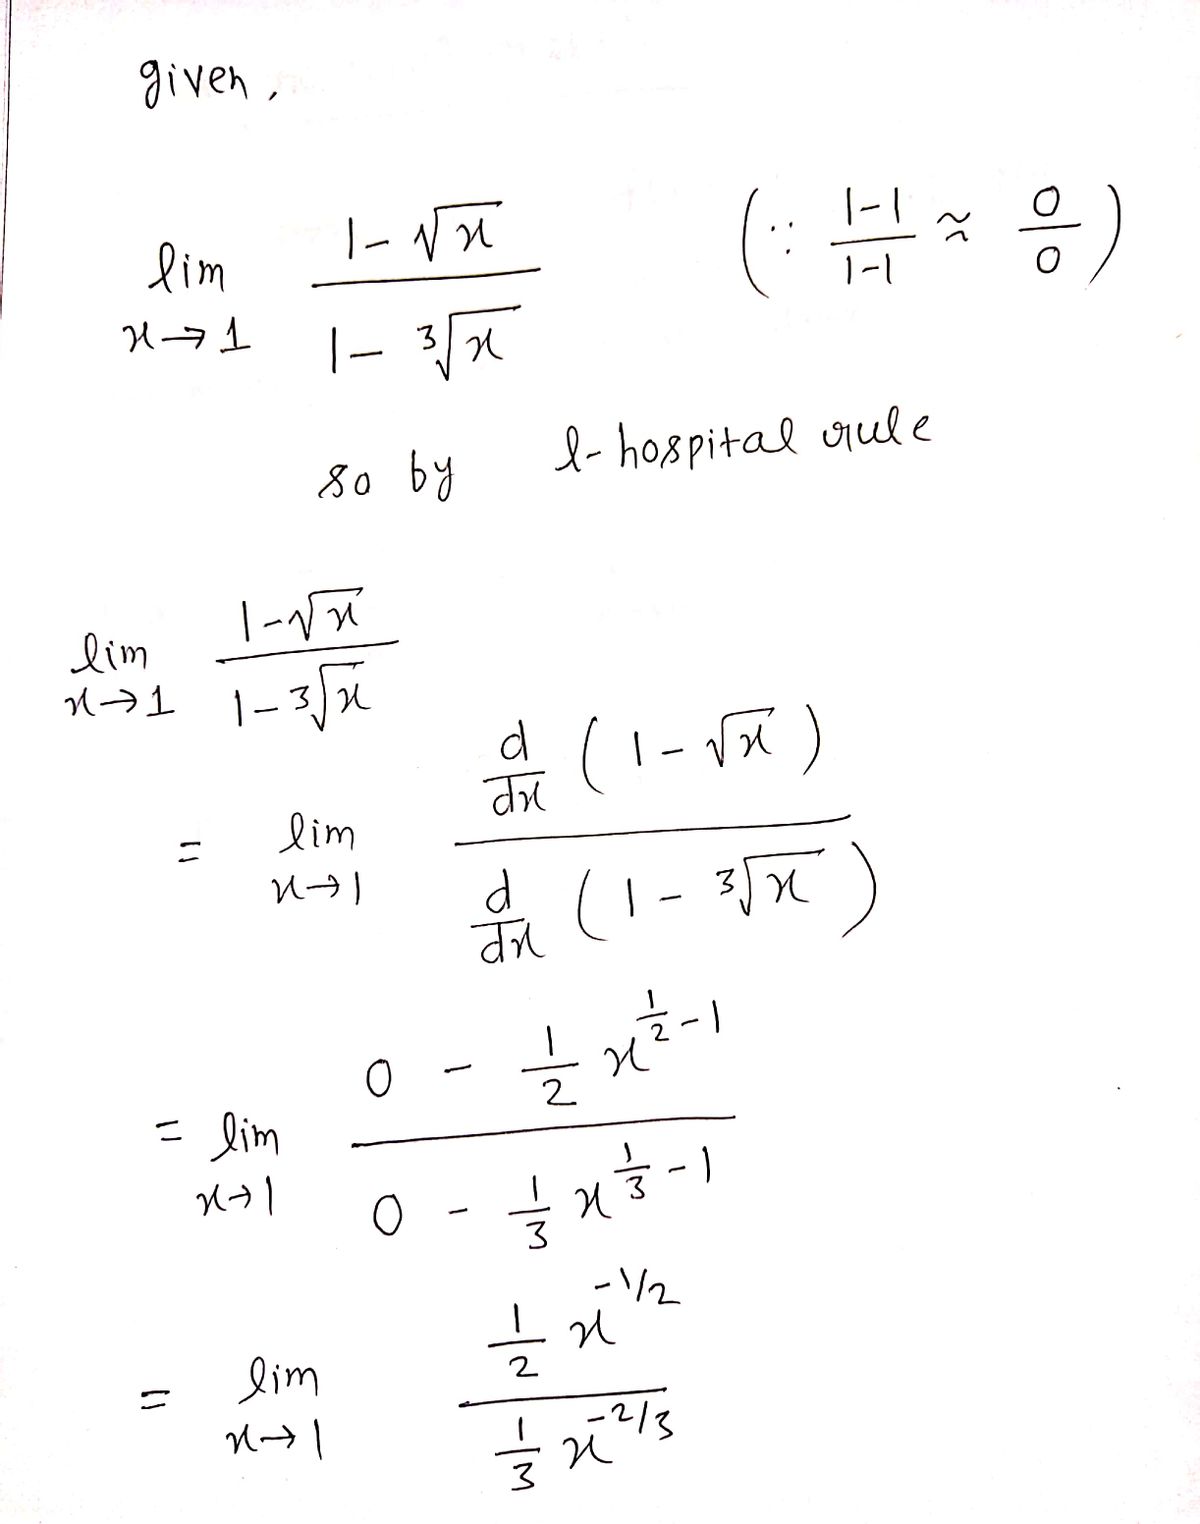 given,
lim x→1 (1-√x)/(1-³√x) (∵ (1-1)/(1-1) ≈ 0/0)
so by l-hospital rule
lim x→1 (1-√x)/(1-³√x)
= lim x→1 (d/dx (1-√x))/(d/dx (1-³√x))
= lim x→1 (0 - 1/2 x^(1/2 - 1))/(0 - 1/3 x^(1/3 - 1))
= lim x→1 (1/2 x^(-1/2))/(1/3 x^(-2/3))